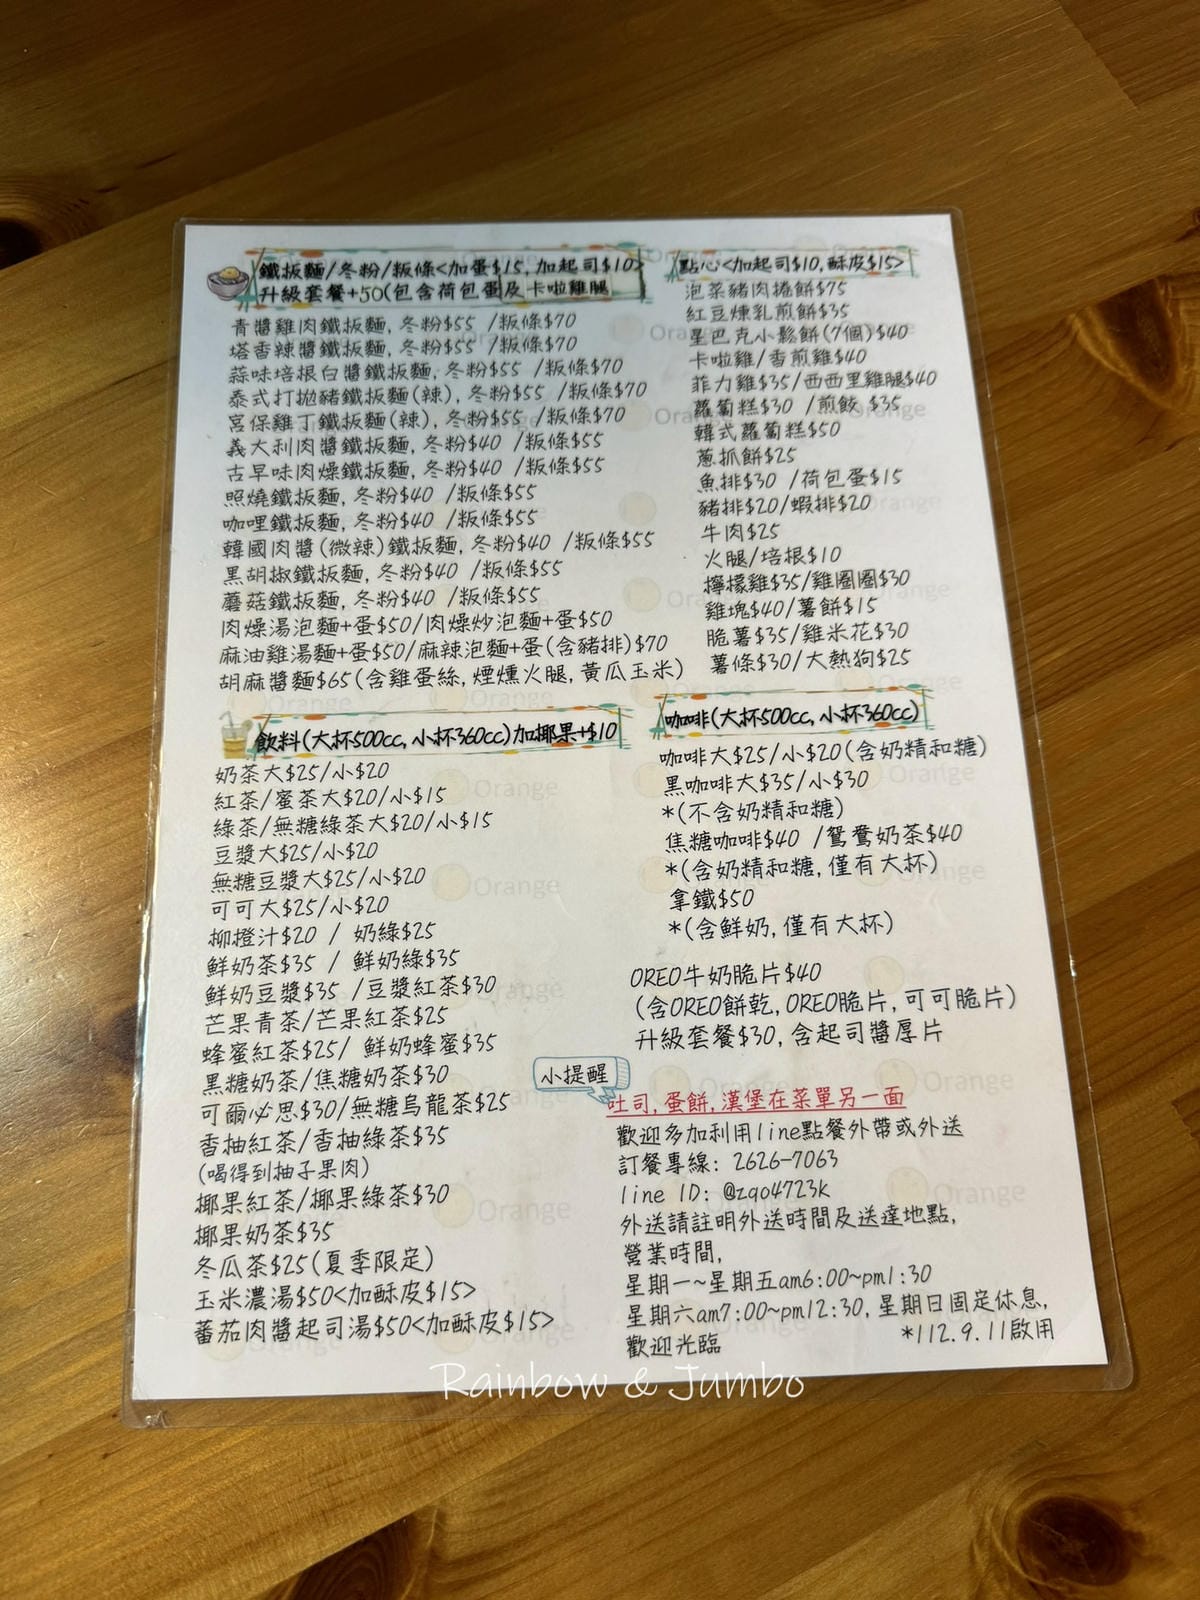 鐵扳麵/冬粉/粄條<加蛋$15,加起司$10>
升級套餐+50(包含荷包蛋及卡啦雞腿
青醬雞肉鐵扳麵,冬粉$55 /粄條$70
塔香辣醬鐵扳麵,冬粉$55 /粄條$70
蒜味培根白醬鐵扳麵,冬粉$55 /粄條$70
泰式打拋豬鐵扳麵(辣),冬粉$55 /粄條$70
宮保雞丁鐵扳麵(辣),冬粉$55 /粄條$70
義大利肉醬鐵扳麵,冬粉$40 /粄條$55
古早味肉燥鐵扳麵,冬粉$40 /粄條$55
照燒鐵扳麵,冬粉$40 /粄條$55
咖哩鐵扳麵,冬粉$40 /粄條$55
韓國肉醬(微辣)鐵扳麵,冬粉$40 /粄條$55
黑胡椒鐵扳麵,冬粉$40 /粄條$55
蘑菇鐵扳麵,冬粉$40 /粄條$55
肉燥湯泡麵+蛋$50/肉燥炒泡麵+蛋$50
麻油雞湯麵+蛋$50/麻辣泡麵+蛋(含豬排)$70
胡麻醬麵$65(含雞蛋絲,煙燻火腿,黃瓜玉米)
點心<加起司$10,酥皮$15>
泡菜豬肉捲餅$75
紅豆煉乳煎餅$35
星巴克小鬆餅(7個)$40
卡啦雞/香煎雞$40
菲力雞$35/西西里雞腿$40
蘿蔔糕$30 /煎餃 $35
韓式蘿蔔糕$50
蔥抓餅$25
魚排$30 /荷包蛋$15
豬排$20/蝦排$20
牛肉$25
火腿/培根$10
檸檬雞$35/雞圈圈$30
雞塊$40/薯餅$15
脆薯$35/雞米花$30
薯條$30/大熱狗$25
飲料(大杯500cc,小杯360cc)加椰果+$10
奶茶大$25/小$20
紅茶/蜜茶大$20/小$15
綠茶/無糖綠茶大$20/小$15
豆漿大$25/小$20
無糖豆漿大$25/小$20
可可大$25/小$20
柳橙汁$20 / 奶綠$25
鮮奶茶$35 / 鮮奶綠$35
鮮奶豆漿$35 /豆漿紅茶$30
芒果青茶/芒果紅茶$25
蜂蜜紅茶$25/ 鮮奶蜂蜜$35
黑糖奶茶/焦糖奶茶$30
可爾必思$30/無糖烏龍茶$25
香柚紅茶/香柚綠茶$35
(喝得到柚子果肉)
椰果紅茶/椰果綠茶$30
椰果奶茶$35
冬瓜茶$25(夏季限定)
玉米濃湯$50<加酥皮$15>
蕃茄肉醬起司湯$50<加酥皮$15>
咖啡(大杯500cc,小杯360cc)
咖啡大$25/小$20(含奶精和糖)
黑咖啡大$35/小$30
*(不含奶精和糖)
焦糖咖啡$40 /鴛鴦奶茶$40
*(含奶精和糖,僅有大杯)
拿鐵$50
*(含鮮奶,僅有大杯)
OREO牛奶脆片$40
(含OREO餅乾,OREO脆片,可可脆片)
升級套餐$30,含起司醬厚片
小提醒
吐司,蛋餅,漢堡在菜單另一面
歡迎多加利用line點餐外帶或外送
訂餐專線: 2626-7063
line ID: @zqo4723k
外送請註明外送時間及送達地點,
營業時間,
星期一~星期五am6:00~pm1:30
星期六am7:00~pm12:30,星期日固定休息,
歡迎光臨
*112.9.11啟用
Rainbow & Jumbo